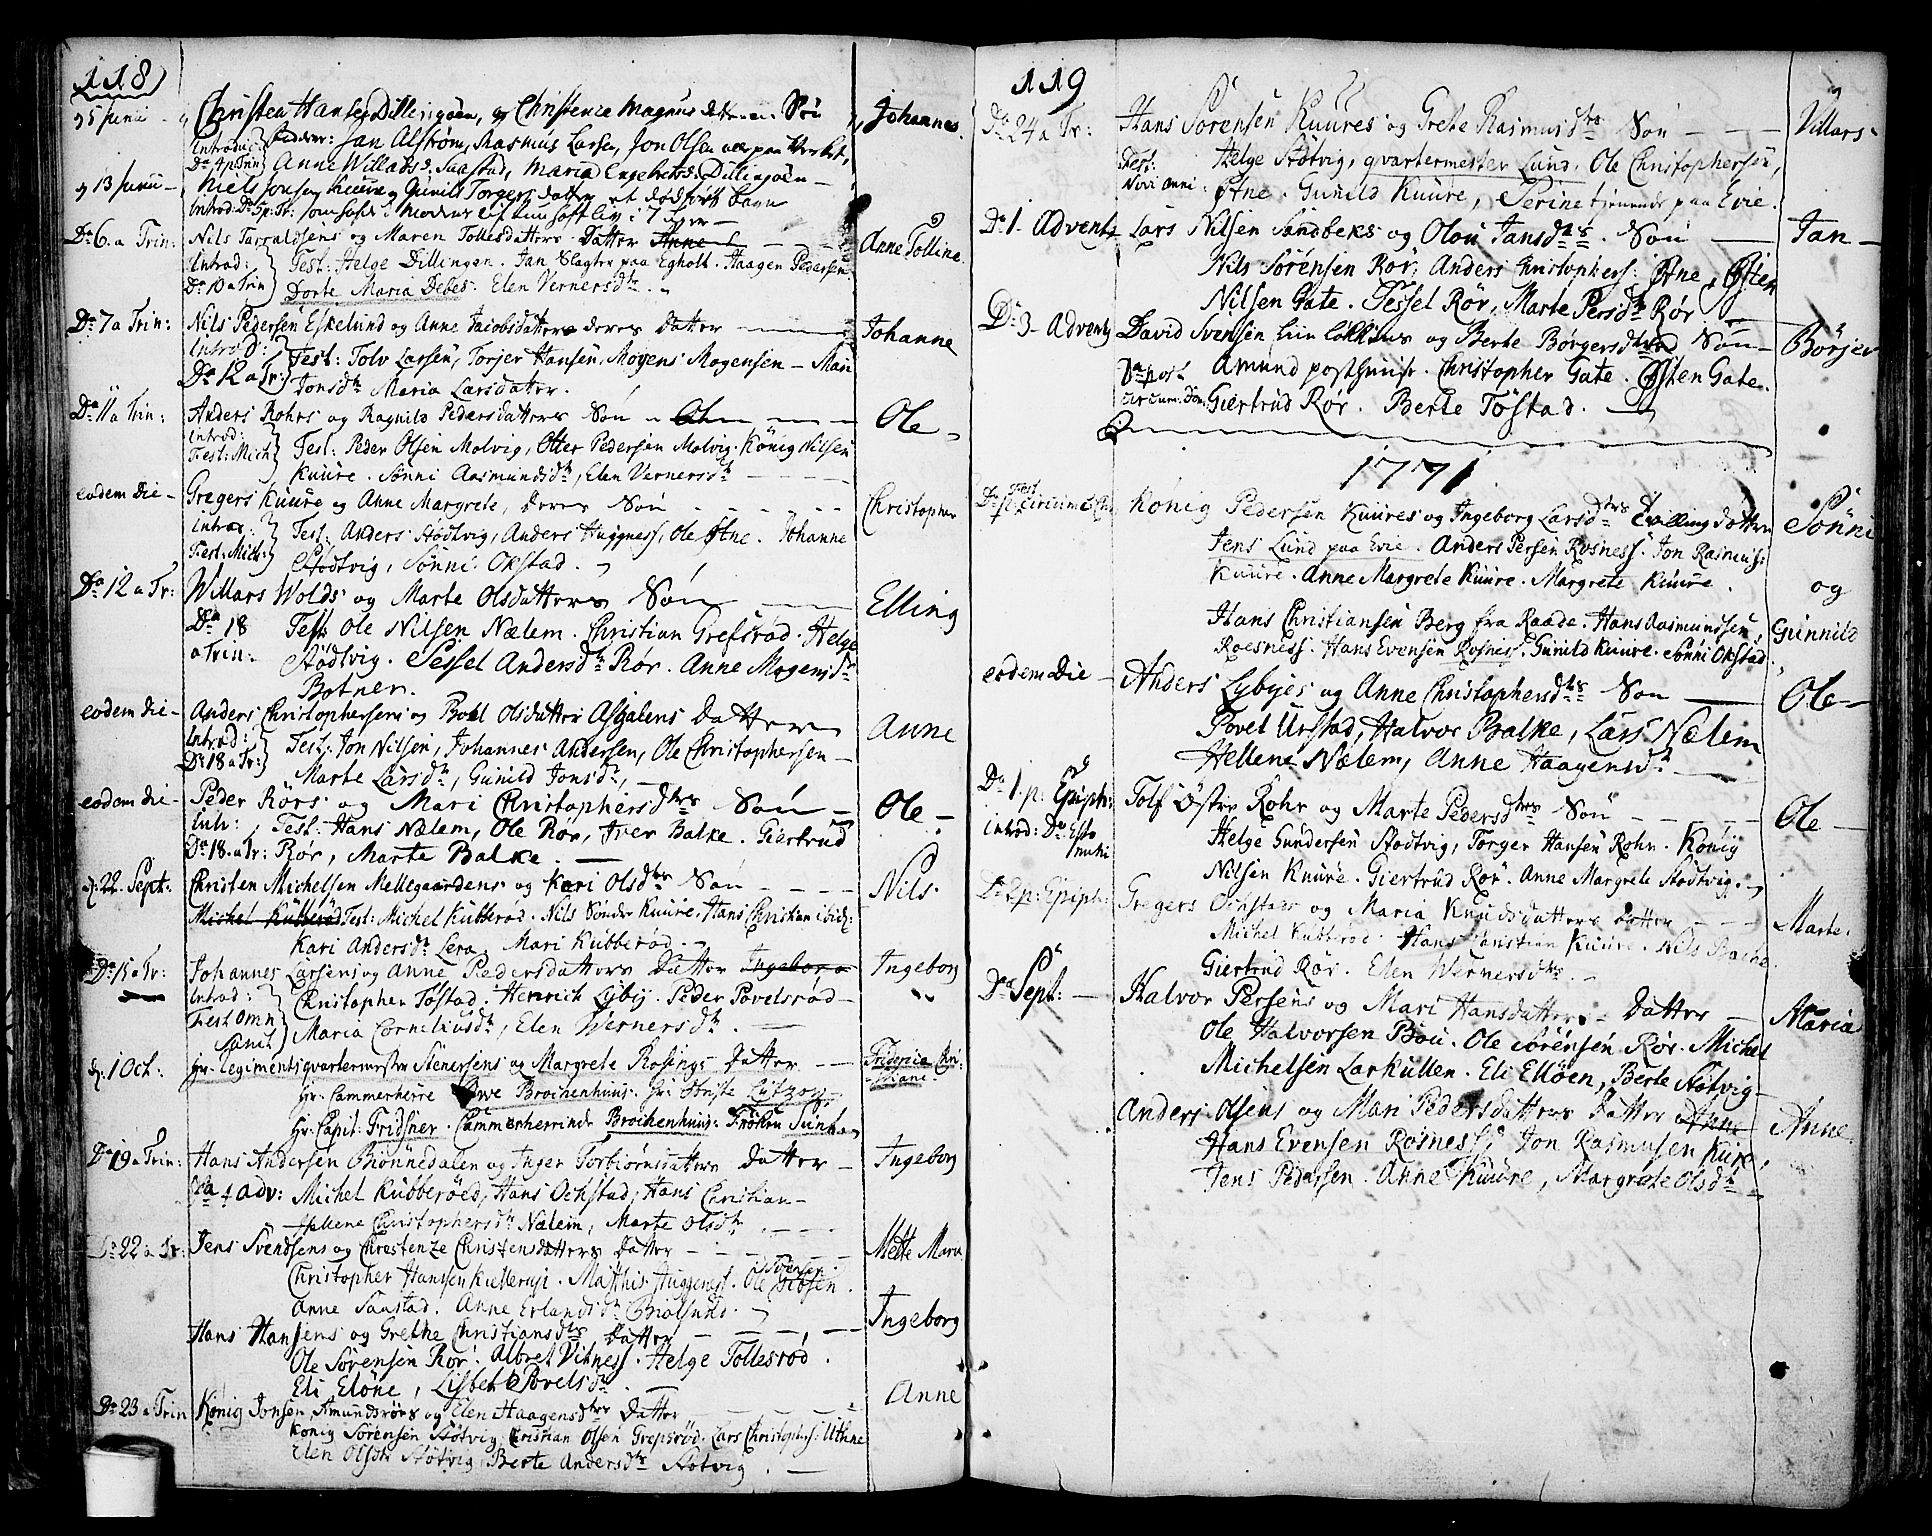 118)
5 Junii - Christen Hansen Dillingöen, og Christence Magnus datters Sön Johannes.
Introd: Fadder: Jan Alström, Rasmus Larsen, Jon Olsen alle paa Verket,
Do 4 p Trin Anne Willads D: Saastad, Maria Engebretsd: Dillingöen -
13 Junii - Niels Jonsen Kuure og Gunild Torgersdatter et dödfödt barn
Introd: Do 5 p: Tr:
Do 6. a Trin: Nils Tarraldsens og Maren Tollesdatters Datter Anne Anne Tolline.
Introd: Test: Helge Dillingen. Jan Slagter paa Egholt. Haagen Pedersen
Do 10 a Trin Dorte Maria Debes. Elen Vernersdtr.
Do 7 a Trin: Nils Pedersen Eskelund og Anne Jacobsdatters deres Datter Johanne
Introd: Test: Tolv Larsen, Torjer Hansen. Mogens Mogensen - Mari
Do 12 a Tr: Jonsdtr Maria Larsdatter.
Do 11 a Trin: Anders Rohrs og Ragnild Pedersdatters Sön Ole Ole
Introd: Test: Peder Olsen Molvig, Otter Pedersen Molvig. König Nilsen
Fest: Mich Kuure. Sönni Aasmundsdtr, Elen Vernersdtr
eodem Die - Gregers Kuure og Anne Margrete, deres Sön Christopher
Introd: Test: Anders Stödtvig, Anders Huggness, Ole Ftne. Johanne
Fest: Mich: Stödtvig, Sönni Okstad.
Do 12 a Tr: Willars Wolds og Marte Olsdatters Sön Elling
Do 18 Test: Ole Nilsen Nælem. Christian Grefsröd. Helge
a Trin: Stödtvig. Sessel Andersdtr Rör. Anne Mogensdtr
Botner.
eodem Die - Anders Christophersens og Bohl Olsdatters Asgalens Datter Anne
Introd: Test: Jon Nilsen, Johannes Andersen, Ole Christophersen -
Do 18 a Tr: Marte Larsdtr, Gunild Jonsdtr,
eodem Die - Peder Rörs og Mari Christophersdtrs Sön - Ole -
Intr: Test: Hans Nælem, Ole Rör, Iver Balke. Giertrud
Do 18. a Tr: Rör, Marte Balke.
d: 22 Sept: Christen Michelsen Mellegaardens og Kari Olsdtrs Sön Nils.
Michel Kubberöd Test: Michel Kubberöd. Nils Söndre Kuure. Hans Christian ibid:
Kari Andersdtr Lera. Mari Kubberöd.
Do 15 a Tr: Johannes Larsens og Anne Pedersdatters Datter Ingeborg Ingeborg
Introd: Christopher Töstad. Henrich Lyby. Peder Povelsröd -
Fest Omn Sanct. Maria Corneliusdtr, Elen Wernersdtr.
d: 1 Oct: Hr. Regimentsquartermester Stenersens og Margrete Rosings Datter Friderica Chri:
stiane.
Hr. Cammerherre Ove Brochenhuus. Hr: Lützow.
Hr: Capit: Fridsner. Cammerherrinde Brochenhuus: Fröken Sunh
Do 19 a Trin: Hans Andersen Brönnedalen og Inger Torbiörnsdatters Datter - Ingeborg
Do 1 Adv: Michel Kubberöed, Hans Ochstad, Hans Christian -
Hellene Christophersdtr Nælem, Marte Olsdtr
Do 22 a Tr: Jens Svendsens og Chrestenze Christensdatters Datter Mette Maria
Christopher Hanssen Kullerust. Matthis Huggenest. Ole Ibsen. Svensen.
Anne Saastad. Anne Erlandsdtr Brolsund.
Hans Hansens og Grethe Christiansdtrs Datter Ingeborg
Ole Sörensen Rör. Albret Vitness. Helge Tollesröd.
Eli Elöne, Lisbet Povelsdtr
Do 23 a Trin König Jonsen Amundsrörs og Elen Haagensdtrs Datter Anne
König Sörensen Stötvig. Cristian Olsen Grepsröd. Lars Christophs: Uthne
Elen Olsdtr Stötvig, Berte Andersdtr Stötvig.
119
Do 24 a Tr: Hans Sörensen Kuures og Grete Rasmusdtrs Sön Villars.
Fest: Helge Stötvig, qvartermester Lund. Ole Christophersen,
Novi Anni: Ftne. Gunild Kuure, Perine tjenende paa Evie.
Do 1. Advent Lars Nilsen Sandbeks og Olou Jansdtrs. Sön Jan -
Nils Sörensen Rör, Anders Christophers: Ftne, Östen
Nilsen Gate. Sessel Rör, Marte Persdtr Rör
Do 3 Advent David Svensen Lökkens og Berte Börgersdtrs Sön - Börjer
Do post Amund posthuus. Christopher Gate. Östen Gate.
circum: Dom: Giertrud Rör. Berte Töstad.
1771
Do p. Fest Circumc: König Pedersen Kuures og Ingeborg Larsdtrs Tvilling döttre Sönni
Jens Lund paa Evie. Anders Persen Rosness. Jon Rasmuss:
Kuure. Anne Margrete Kuure. Margrete Kuure. og
Hans Christiansen Berg fra Raade. Hans Aasmundssen, Gunnild
Roesness. Hans Evensen Rosness. Gunild Kuure. Sönni Okstad.
eodem Die - Anders Lybyes og Anne Christophersdtrs Sön Ole -
Povel Urstad, Halvor Balke, Lars Nælem
Hellene Nælem, Anne Haagensdtr.
Do 1. p: Epiph: Tolf Östre Rohr og Marte Pedersdtrs Sön Ole -
introd: Do Esto mihi Helge Gundersen Stödtvig, Torger Hansen Rohr. König
Nilsen Kuure. Giertrud Rör. Anne Margrete Stödtvig.
Do 2 p: Epiph: Gregers Ochstad og Maria Knudsdatters Datter Marte.
Michel Kubberöd. Hans Christian Kuure. Nils Bache
Giertrud Rör. Elen Wernersdtr.
Do Sept: - Halvor Persens og Mari Hansdatters Datter - Maria
Ole Halvorsen Bou. Ole Sörensen Rör. Michel
Michelsen Larkullen. Eli Ellöen, Berte Stötvig
Anders Olsens og Mari Pedersdatters Datter Anne Anne
Hans Evensen Rosness, Jon Rasmusen Kure,
Jens Pedersen. Anne Kuure, Margrete Olsdtr